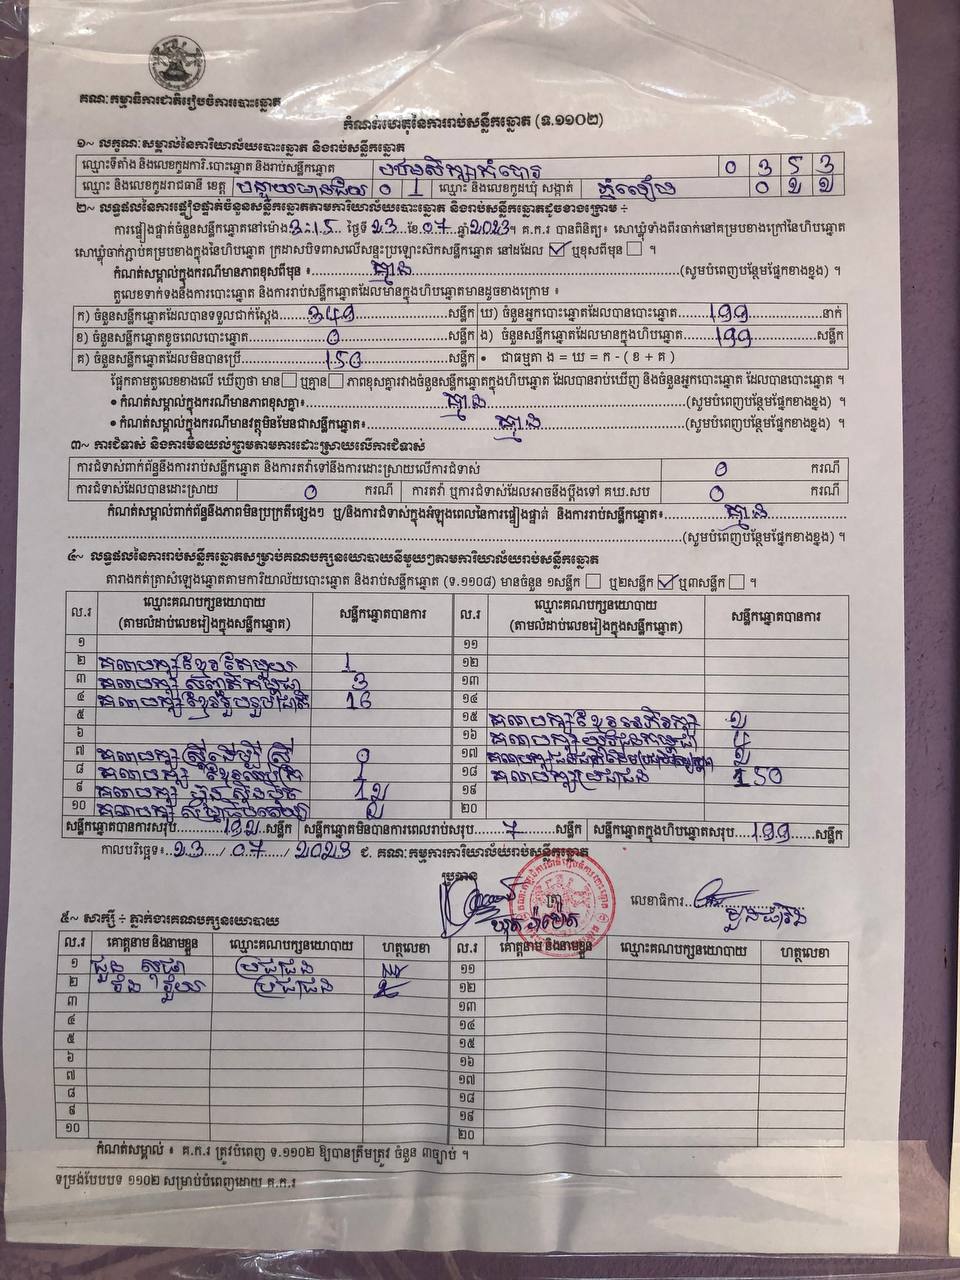 គណៈកម្មាធិការជាតិរៀបចំការបោះឆ្នោត
កំណត់ហេតុនៃការរាប់សន្លឹកឆ្នោត (ទ.១១០២)
១~ លក្ខណៈសម្គាល់នៃការិយាល័យបោះឆ្នោត និងរាប់សន្លឹកឆ្នោត
ឈ្មោះទីតាំង និងលេខកូដការិ.បោះឆ្នោត និងរាប់សន្លឹកឆ្នោត 0 3 5 3
ឈ្មោះ និងលេខកូដរាជធានី ខេត្ត បន្ទាយមានជ័យ 0 1 ឈ្មោះ និងលេខកូដឃុំ សង្កាត់
២~ លទ្ធផលនៃការផ្ទៀងផ្ទាត់ចំនួនសន្លឹកឆ្នោតតាមការិយាល័យបោះឆ្នោត និងរាប់សន្លឹកឆ្នោតដូចខាងក្រោម ÷
ការផ្ទៀងផ្ទាត់ចំនួនសន្លឹកឆ្នោតនៅម៉ោង 3:15 ថ្ងៃទី 23 ខែ 07 ឆ្នាំ 2023។ គ.ក.រ បានពិនិត្យ៖ សោឃ្លុំទាំងពីរចាក់នៅគម្របខាងក្រៅនៃហិបឆ្នោត
សោឃ្លុំចាក់ភ្ជាប់គម្របខាងក្នុងនៃហិបឆ្នោត ក្រដាសបិទពាសលើសន្ទះប្រឡោះស៊កសន្លឹកឆ្នោត នៅដដែល ☑ ឬខុសពីមុន ☐ ។
កំណត់សម្គាល់ក្នុងករណីមានភាពខុសពីមុន ៖ គ្មាន (សូមបំពេញបន្ថែមផ្នែកខាងខ្នង) ។
តួលេខទាក់ទងនឹងការបោះឆ្នោត និងការរាប់សន្លឹកឆ្នោតដែលមានក្នុងហិបឆ្នោតមានដូចខាងក្រោម ៖
ក) ចំនួនសន្លឹកឆ្នោតដែលបានទទួលជាក់ស្តែង 349 សន្លឹក ឃ) ចំនួនអ្នកបោះឆ្នោតដែលបានបោះឆ្នោត 199 នាក់
ខ) ចំនួនសន្លឹកឆ្នោតខូចពេលបោះឆ្នោត 0 សន្លឹក ង) ចំនួនសន្លឹកឆ្នោតដែលមានក្នុងហិបឆ្នោត 199 សន្លឹក
គ) ចំនួនសន្លឹកឆ្នោតដែលមិនបានប្រើ 150 សន្លឹក • ជាធម្មតា ង = ឃ = ក - ( ខ + គ )
ផ្អែកតាមតួលេខខាងលើ ឃើញថា មាន ☐ ឬគ្មាន ☐ ភាពខុសគ្នារវាងចំនួនសន្លឹកឆ្នោតក្នុងហិបឆ្នោត ដែលបានរាប់ឃើញ និងចំនួនអ្នកបោះឆ្នោត ដែលបានបោះឆ្នោត ។
• កំណត់សម្គាល់ក្នុងករណីមានភាពខុសគ្នា៖ គ្មាន (សូមបំពេញបន្ថែមផ្នែកខាងខ្នង) ។
• កំណត់សម្គាល់ក្នុងករណីមានវត្ថុមិនមែនជាសន្លឹកឆ្នោត៖ គ្មាន (សូមបំពេញបន្ថែមផ្នែកខាងខ្នង) ។
៣~ ការជំទាស់ និងការមិនយល់ព្រមតាមការដោះស្រាយលើការជំទាស់
ការជំទាស់ពាក់ព័ន្ធនឹងការរាប់សន្លឹកឆ្នោត និងការតវ៉ាទៅនឹងការដោះស្រាយលើការជំទាស់ 0 ករណី
ការជំទាស់ដែលបានដោះស្រាយ 0 ករណី ការតវ៉ា ឬការជំទាស់ដែលអាចនឹងប្តឹងទៅ គឃ.សប 0 ករណី
កំណត់សម្គាល់ពាក់ព័ន្ធនឹងភាពមិនប្រក្រតីផ្សេងៗ ឬ/និងការជំទាស់ក្នុងអំឡុងពេលនៃការផ្ទៀងផ្ទាត់ និងការរាប់សន្លឹកឆ្នោត៖ គ្មាន
(សូមបំពេញបន្ថែមផ្នែកខាងខ្នង) ។
៤~ លទ្ធផលនៃការរាប់សន្លឹកឆ្នោតសម្រាប់គណបក្សនយោបាយនីមួយៗតាមការិយាល័យរាប់សន្លឹកឆ្នោត
តារាងកត់ត្រាសំឡេងឆ្នោតតាមការិយាល័យបោះឆ្នោត និងរាប់សន្លឹកឆ្នោត (ទ.១១០៨) មានចំនួន ១សន្លឹក ☐ ឬ២សន្លឹក ☑ ឬ៣សន្លឹក ☐ ។
ល.រ ឈ្មោះគណបក្សនយោបាយ (តាមលំដាប់លេខរៀងក្នុងសន្លឹកឆ្នោត) សន្លឹកឆ្នោតបានការ ល.រ ឈ្មោះគណបក្សនយោបាយ (តាមលំដាប់លេខរៀងក្នុងសន្លឹកឆ្នោត) សន្លឹកឆ្នោតបានការ
១ ១១
២ គណបក្សខ្មែរតែមួយ 1 ១២
៣ គណបក្ស 3 ១៣
៤ គណបក្សខ្មែររួបរួមជាតិ 16 ១៤
៥ ១៥ គណបក្សខ្មែរអភិរក្ស
៦ ១៦ គណបក្ស
៧ គណបក្សស្ត្រីដើម្បីស្ត្រី 0 ១៧ គណបក្ស
៨ គណបក្ស 1 ១៨ គណបក្សប្រជាជន 150
៩ គណបក្សហ៊្វុនស៊ិនប៉ិច ១៩
១០ គណបក្ស ២០
សន្លឹកឆ្នោតបានការសរុប 192 សន្លឹក សន្លឹកឆ្នោតមិនបានការពេលរាប់សរុប 7 សន្លឹក សន្លឹកឆ្នោតក្នុងហិបឆ្នោតសរុប 199 សន្លឹក
កាលបរិច្ឆេទ៖ 23 / 07 / 2023 ជ. គណៈកម្មការការិយាល័យរាប់សន្លឹកឆ្នោត
ប្រធាន ត្រា លេខាធិការ
៥~ សាក្សី ÷ ភ្នាក់ងារគណបក្សនយោបាយ
ល.រ គោត្តនាម និងនាមខ្លួន ឈ្មោះគណបក្សនយោបាយ ហត្ថលេខា ល.រ គោត្តនាម និងនាមខ្លួន ឈ្មោះគណបក្សនយោបាយ ហត្ថលេខា
១ ប្រជាជន ១១
២ ប្រជាជន ១២
៣ ១៣
៤ ១៤
៥ ១៥
៦ ១៦
៧ ១៧
៨ ១៨
៩ ១៩
១០ ២០
កំណត់សម្គាល់ ៖ គ.ក.រ ត្រូវបំពេញ ទ.១១០២ ឱ្យបានត្រឹមត្រូវ ចំនួន ៣ច្បាប់ ។
ទម្រង់បែបបទ ១១០២ សម្រាប់បំពេញដោយ គ.ក.រ